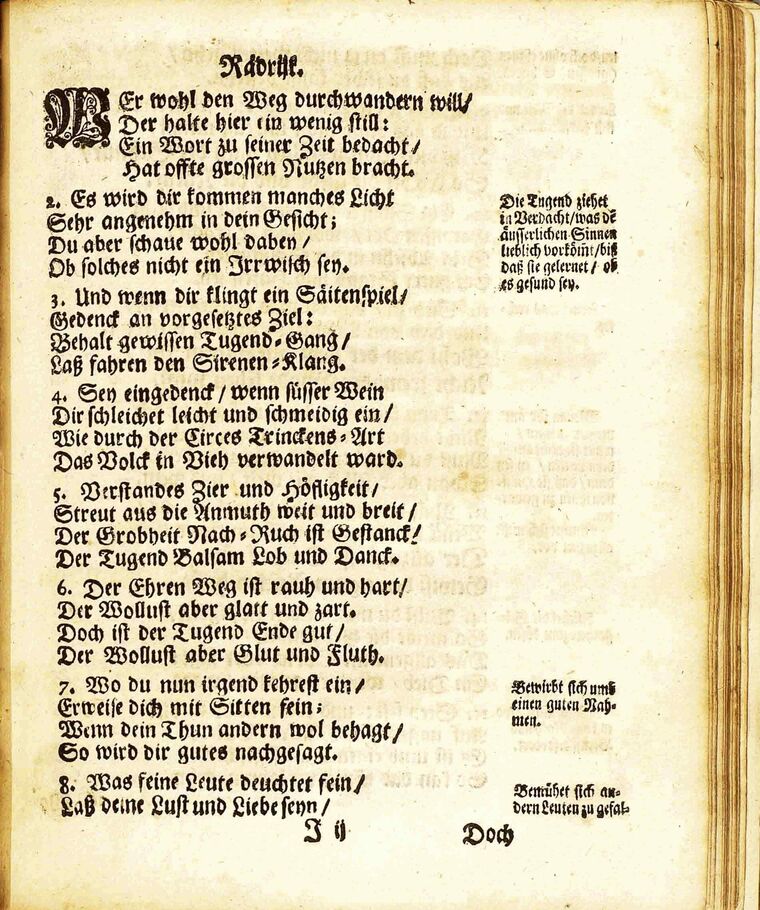 Rädrijk.
WEr wohl den Weg durchwandern will/
Der halte hier ein wenig still:
Ein Wort zu seiner Zeit bedacht/
Hat offte grossen Nutzen bracht.
2. Es wird dir kommen manches Licht
Sehr angenehm in dein Gesicht;
Du aber schaue wohl dabey/
Ob solches nicht ein Irrwisch sey.
Die Tugend ziehet
in Verdacht/was dē
äusserlichen Sinnen
lieblich vorkom̄t/biß
daß sie gelernet/ ob
es gesund sey.
3. Und wenn dir klingt ein Säitenspiel/
Gedenck an vorgesetztes Ziel:
Behalt gewissen Tugend-Gang/
Laß fahren den Sirenen-Klang.
4. Sey eingedenck/ wenn süsser Wein
Dir schleichet leicht und schmeidig ein/
Wie durch der Circes Trinckens-Art
Das Volck in Vieh verwandelt ward.
5. Verstandes Zier und Höfligkeit/
Streut aus die Anmuth weit und breit/
Der Grobheit Nach-Ruch ist Gestanck/
Der Tugend Balsam Lob und Danck.
6. Der Ehren Weg ist rauh und hart/
Der Wollust aber glatt und zart.
Doch ist der Tugend Ende gut/
Der Wollust aber Glut und Fluth.
7. Wo du nun irgend kehrest ein/
Erweise dich mit Sitten fein;
Wenn dein Thun andern wol behagt/
So wird dir gutes nachgesagt.
Bewirbt sich umb
einen guten Nah-
men.
8. Was feine Leute deuchtet fein/
Laß deine Lust und Liebe seyn/
Bemühet sich an-
dern Leuten zu gefal-
J ij
Doch